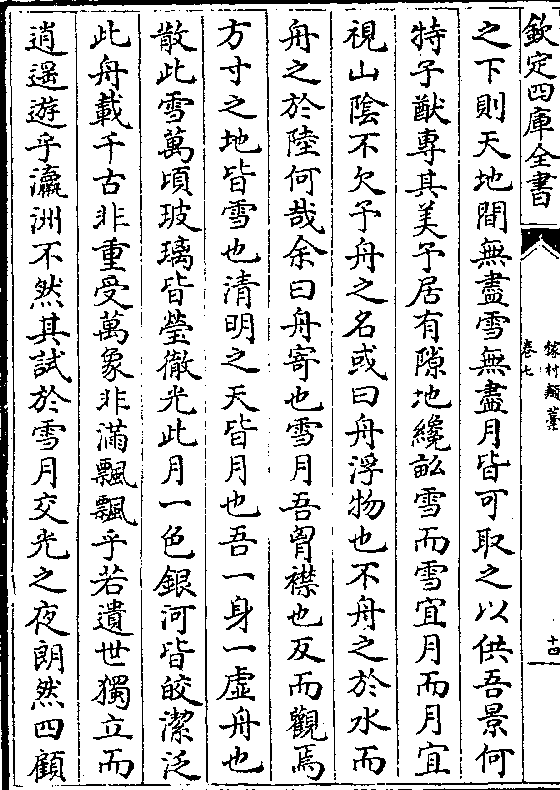 欽定四庫全書
稼村類藁
卷七
十四
之下則天地間無盡雪無盡月皆可取之以供吾景何
特子猷專其美予居有隙地纔畝雪而雪宜月而月宜
視山陰不欠予舟之名或曰舟浮物也不舟之於水而
舟之於陸何哉余曰舟寄也雪月吾胷襟也反而觀焉
方寸之地皆雪也清明之天皆月也吾一身一虛舟也
散此雪萬頃玻璃皆瑩徹光此月一色銀河皆皎潔泛
此舟載千古非重受萬象非滿飄飄乎若遺世獨立而
逍遥遊乎瀛洲不然其試於雪月交光之夜朗然四顧